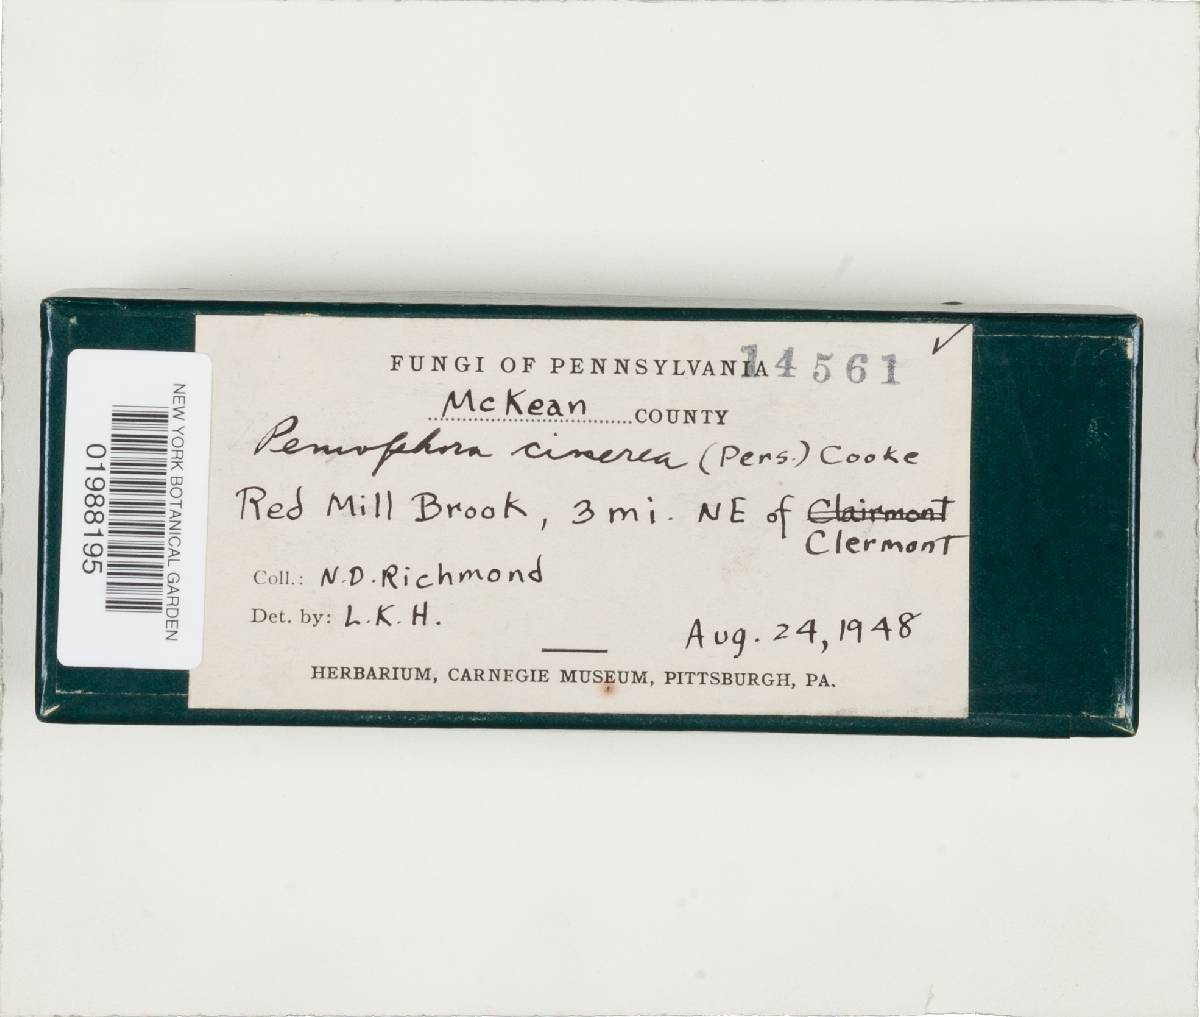 FUNGI OF PENNSYLVANIA 14561
McKean COUNTY
Peniophora cinerea (Pers.) Cooke
Red Mill Brook, 3 mi. NE of Clairmont
Clermont
Coll.: N.D. Richmond
Det. by: L.K.H.
Aug. 24, 1948
HERBARIUM, CARNEGIE MUSEUM, PITTSBURGH, PA.
NEW YORK BOTANICAL GARDEN
01988195